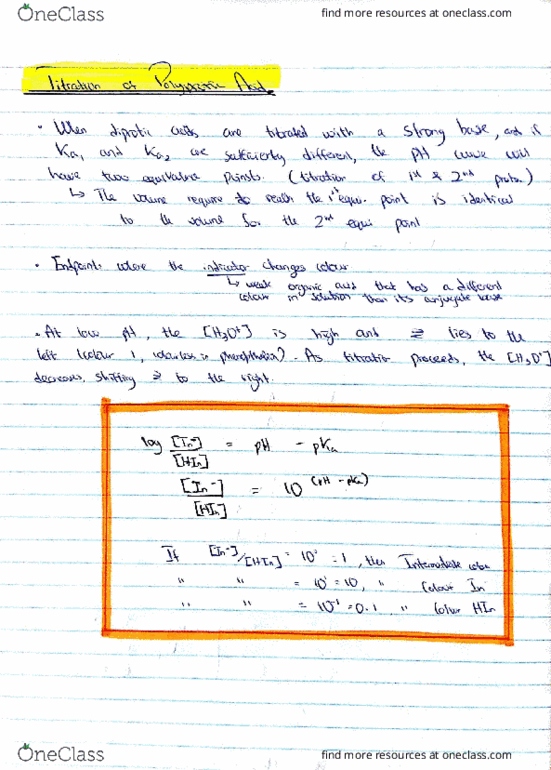 OneClass
find more resources at oneclass.com
Titration of Polyprotic Acid
• When diprotic acids are titrated with a strong base, and if
Ka1 and Ka2 are sufficiently different, the pH curve will
have two equivalence points. (titration of 1st & 2nd proton)
↳ The volume require to reach the 1st equi. point is identical
to the volume for the 2nd equi point
• Endpoint: where the indicator changes colour
↳ weak organic acid that has a different
colour in solution than its conjugate base
• At low pH, the [H3O+] is high and ⇌ lies to the
left (colour 1, colourless in phenolphthalein). As titration proceeds, the [H3O+]
decreases, shifting ⇌ to the right.
log [In-]/[HIn] = pH - pKa
[In-]/[HIn] = 10^(pH - pKa)
If [In-]/[HIn] = 10⁰ = 1, then Intermediate colour
" " = 10¹ = 10, " Colour In
" " = 10⁻¹ = 0.1 " Colour HIn
OneClass
find more resources at oneclass.com